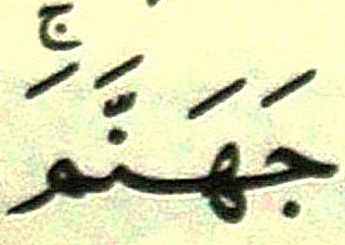 جَهَنَّمَۚ